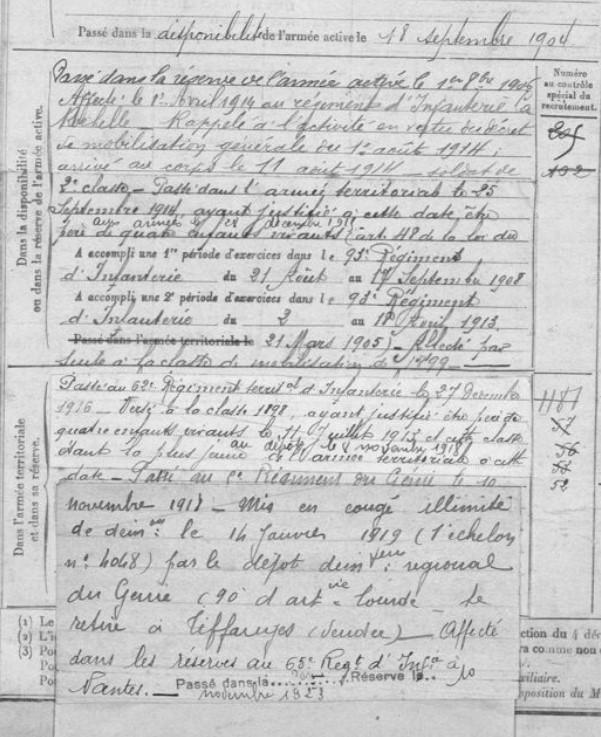 Passé dans la disponibilité de l'armée active le 18 septembre 1904
Numéro
au contrôle
spécial du
recrutement.
Dans la disponibilité
ou dans la réserve de l'armée active.
Passé dans la réserve de l'armée active le 1er 8bre 1906
Affecté le 1er Avril 1914 au régiment d'Infanterie La
Rochelle Rappelé à l'activité en vertu du décret
de mobilisation générale du 1er août 1914;
arrivé au corps le 11 août 1914 – soldat de
2e classe – Passé dans l'armée territoriale le 25
Septembre 1914, ayant justifié à cette date être
aux armées le 28 décembre
père de quatre enfants vivants (art. 48 de la loi du
A accompli une 1re période d'exercices dans le 93e Régiment
d'Infanterie du 21 Août au 17 Septembre 1908
A accompli une 2e période d'exercices dans le 93e Régiment
d'Infanterie du 2 au 18 Avril 1913.
Passé dans l'armée territoriale le 21 Mars 1905) – Affecté par
suite à la classe de mobilisation de 1899 –
102
Dans l'armée territoriale
et dans sa réserve.
Passé au 62e Régiment territal d'Infanterie le 27 Décembre
1916 – Versé à la classe 1898, ayant justifié être père de
quatre enfants vivants le 11 Juillet 1915 et cette classe
au dépôt le 8 novembre 1918
dont la plus jeune de l'armée territoriale à cette
date – Passé au 6e Régiment du Génie le 10
1187
57
56
52
novembre 1918 – Mis en congé illimité
de démon : le 14 Janvier 1919 (1 échelon
no 4048) par le dépôt démobilisateur régional
du Génie (90 d'artie lourde – Se
retire à Tiffauges (Vendée) – Affecté
dans les réserves au 65e Regt d'Infie à
Nantes. – Passé dans la Réserve le 10
novembre 1923
(1) Le
(2) L'i
(3) Po
Po
Po
ction du 4 déc
ra comme non
xiliaire.
position du M